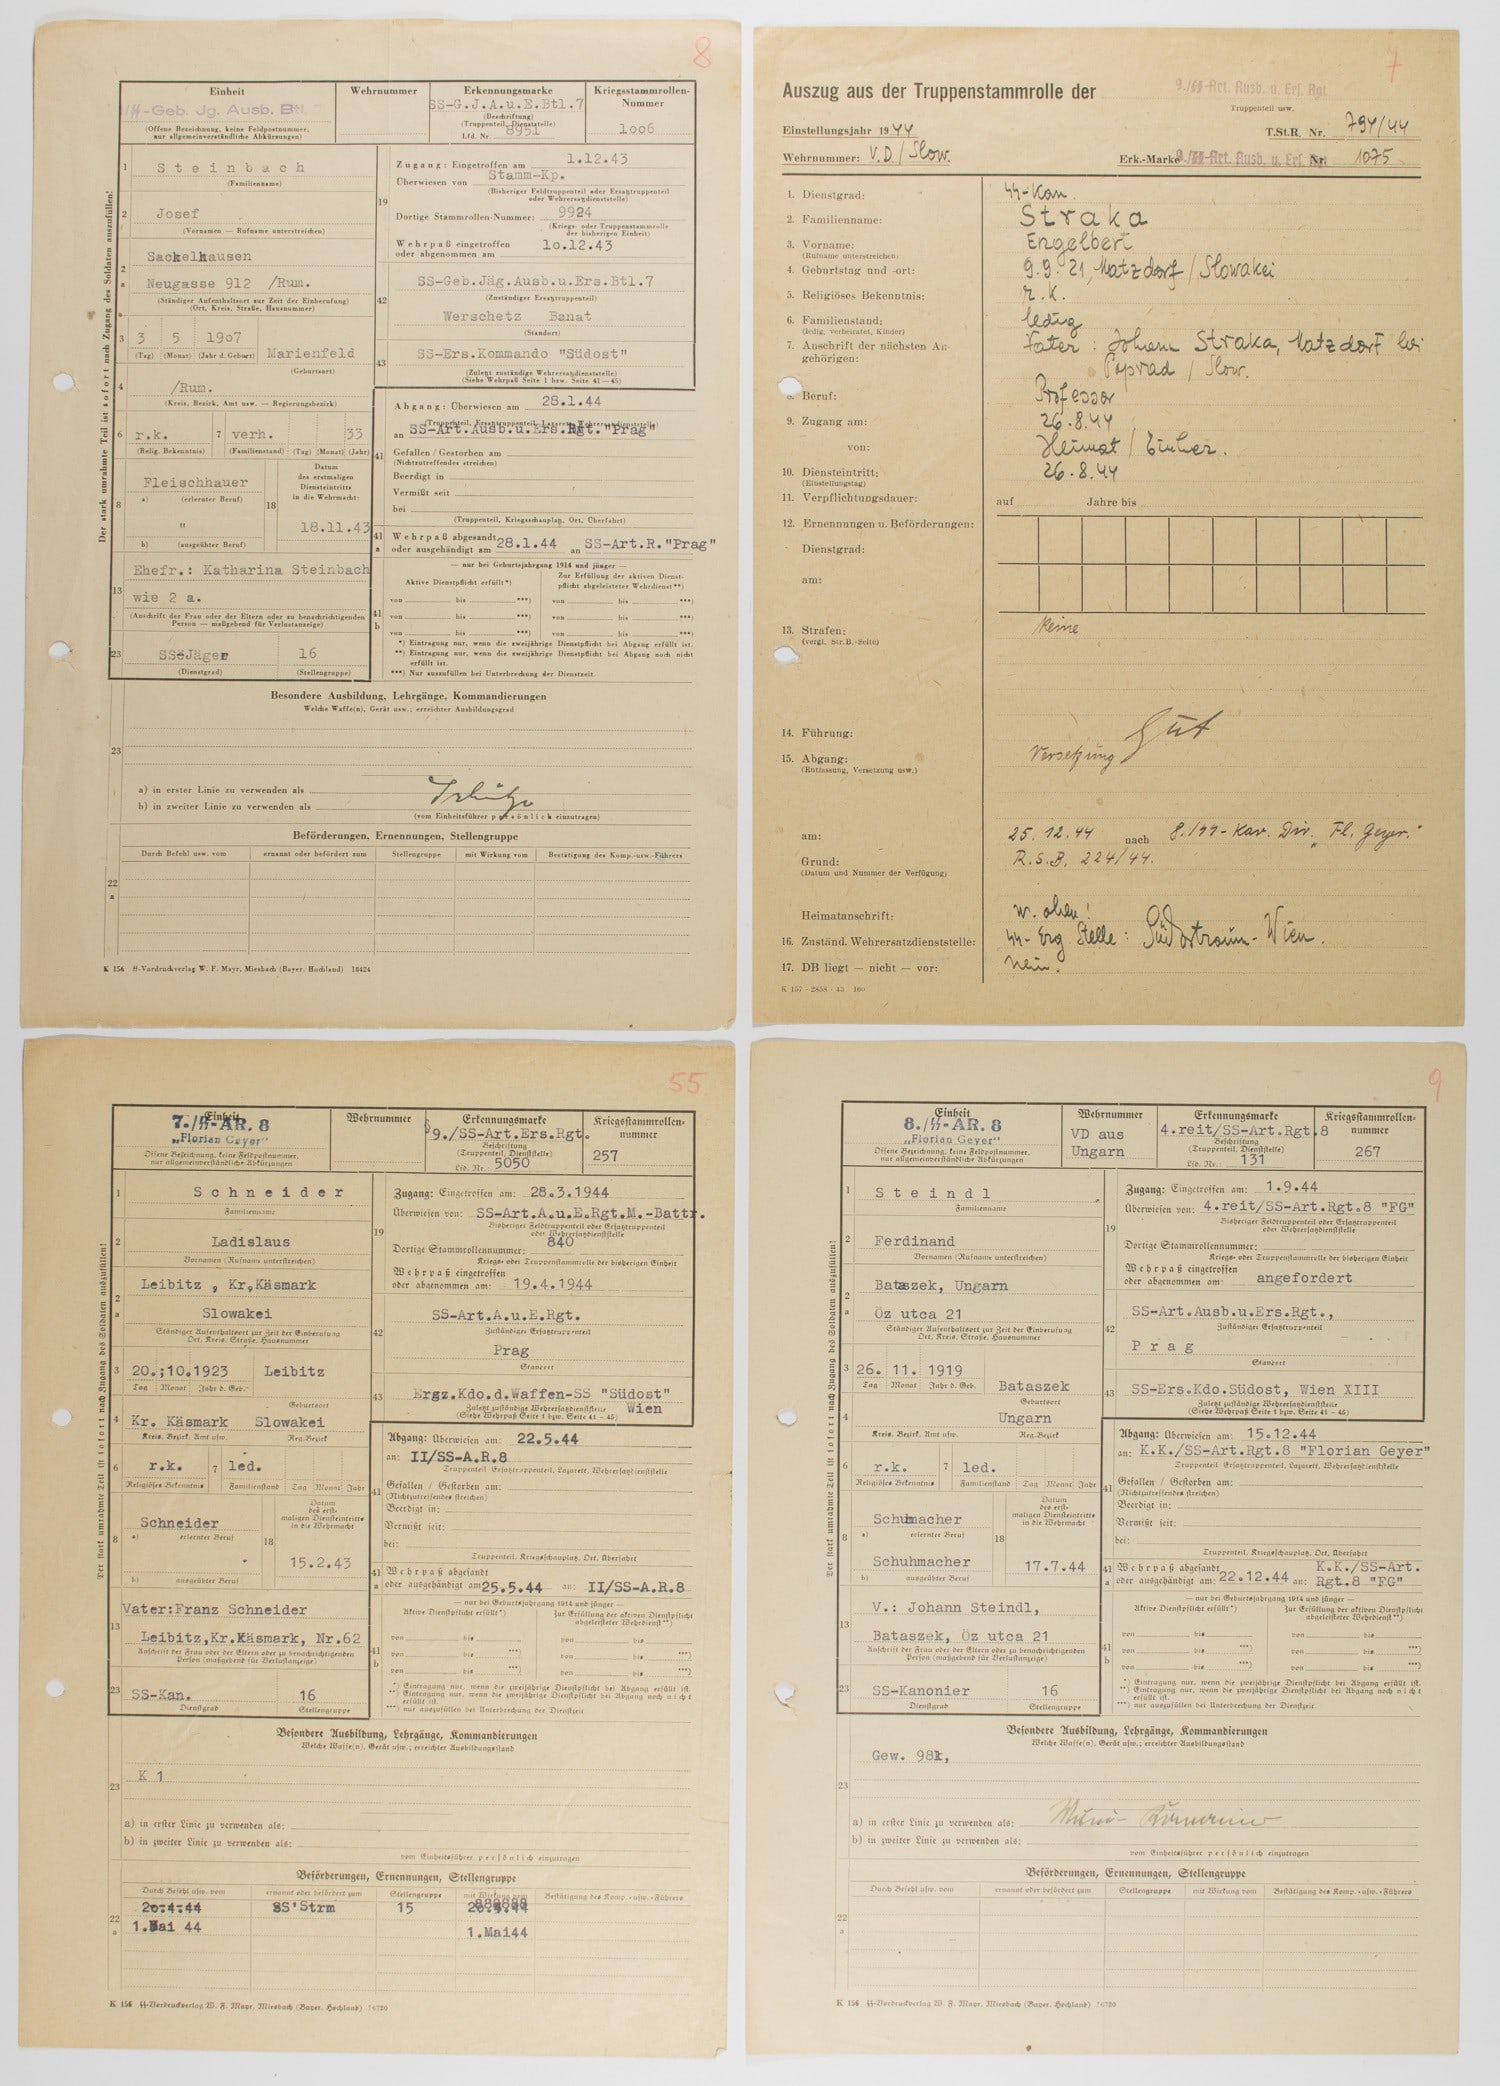 8
Einheit
Wehrnummer
Erkennungsmarke
Kriegsstammrollen-
Nummer
/SS-Geb. Jg. Ausb. Btl. 7
SS-G.J.A.u.E.Btl.7
(Beschriftung)
(Truppenteil, Dienststelle)
Lfd. Nr. 8951
1oo6
(Offene Bezeichnung, keine Feldpostnummer,
nur allgemeinverständliche Abkürzungen)
Der stark umrahmte Teil ist sofort nach Zugang des Soldaten auszufüllen!
1 Steinbach
(Familienname)
2 Josef
(Vornamen — Rufname unterstreichen)
Sackelhausen
2
a Neugasse 912 /Rum.
(Ständiger Aufenthaltsort zur Zeit der Einberufung)
(Ort, Kreis, Straße, Hausnummer)
3 3 5 19o7 Marienfeld
(Tag) (Monat) (Jahr d. Geburt)
(Geburtsort)
4 /Rum.
(Kreis, Bezirk, Amt usw. — Regierungsbezirk)
6 r.k. 7 verh. 33
(Relig. Bekenntnis) (Familienstand) (Tag) (Monat) (Jahr)
Datum
des erstmaligen
Diensteintritts
in die Wehrmacht:
8 Fleischhauer
a) (erlernter Beruf)
18
" 18.11.43
b) (ausgeübter Beruf)
Ehefr.: Katharina Steinbach
13 wie 2 a.
(Anschrift der Frau oder der Eltern oder zu benachrichtigenden
Person — maßgebend für Verlustanzeige)
23 SS-Jäger 16
(Dienstgrad) (Stellengruppe)
19
Zugang: Eingetroffen am 1.12.43
Überwiesen von Stamm-Kp.
(Bisheriger Feldtruppenteil oder Ersatztruppenteil
oder Wehrersatzdienststelle)
Dortige Stammrollen-Nummer: 9924
(Kriegs- oder Truppenstammrolle
der bisherigen Einheit)
Wehrpaß eingetroffen
oder abgenommen am 1o.12.43
42
SS-Geb.Jäg.Ausb.u.Ers.Btl.7
(Zuständiger Ersatztruppenteil)
Werschetz Banat
(Standort)
43 SS-Ers.Kommando "Südost"
(Zuletzt zuständige Wehrersatzdienststelle)
(Siehe Wehrpaß Seite 1 bzw. Seite 41—45)
Abgang: Überwiesen am 28.1.44
(Truppenteil, Ersatztruppenteil, Lazarett, Wehrersatzdienststelle)
an SS-Art.Ausb.u.Ers.Rgt."Prag"
41
Gefallen / Gestorben am
(Nichtzutreffendes streichen)
Beerdigt in
Vermißt seit
bei
(Truppenteil, Kriegsschauplatz, Ort, Überfahrt)
41
a
Wehrpaß abgesandt
oder ausgehändigt am 28.1.44 an SS-Art.R."Prag"
— nur bei Geburtsjahrgang 1914 und jünger —
Aktive Dienstpflicht erfüllt*)
Zur Erfüllung der aktiven Dienst-
pflicht abgeleisteter Wehrdienst**)
von bis ***) von bis ***)
41
b
von bis ***) von bis ***)
von bis ***) von bis ***)
*) Eintragung nur, wenn die zweijährige Dienstpflicht bei Abgang erfüllt ist.
**) Eintragung nur, wenn die zweijährige Dienstpflicht bei Abgang noch nicht
erfüllt ist.
***) Nur auszufüllen bei Unterbrechung der Dienstzeit.
Besondere Ausbildung, Lehrgänge, Kommandierungen
Welche Waffe(n), Gerät usw.; erreichter Ausbildungsgrad
23
a) in erster Linie zu verwenden als
b) in zweiter Linie zu verwenden als
(vom Einheitsführer persönlich einzutragen)
Beförderungen, Ernennungen, Stellengruppe
Durch Befehl usw. vom ernannt oder befördert zum Stellengruppe mit Wirkung vom Bestätigung des Komp.-usw.-Führers
22
a
K 156 SS-Vordruckverlag W. F. Mayr, Miesbach (Bayer. Hochland) 18424
7
Auszug aus der Truppenstammrolle der 9./SS-Art. Ausb. u. Ers. Rgt
Truppenteil usw.
Einstellungsjahr 1944
T.St.R. Nr. 794/44
Wehrnummer: V.D./Slow.
Erk.-Marke 9./SS-Art. Ausb. u. Ers. Rgt Nr. 1075
1. Dienstgrad: SS-Kan.
2. Familienname: Straka
3. Vorname: Engelbert
(Rufname unterstreichen)
4. Geburtstag und -ort: 9.9.21, Matzdorf / Slowakei
5. Religiöses Bekenntnis: r.k.
6. Familienstand: ledig
(ledig, verheiratet, Kinder)
7. Anschrift der nächsten An- Vater: Johann Straka, Matzdorf bei
gehörigen: Poprad / Slow.
8. Beruf: Professor
9. Zugang am: 26.8.44
von: Heimat / Einber.
10. Diensteintritt: 26.8.44
(Einstellungstag)
11. Verpflichtungsdauer: auf Jahre bis
12. Ernennungen u. Beförderungen:
Dienstgrad:
am:
13. Strafen: Keine
(vergl. Str.B.-Seite)
14. Führung: Gut
15. Abgang: Versetzung
(Entlassung, Versetzung usw.)
am: 25.12.44 nach 8./SS-Kav. Div. "Fl. Geyer."
Grund: R.S.B. 224/44.
(Datum und Nummer der Verfügung)
Heimatanschrift: w. oben!
16. Zuständ. Wehrersatzdienststelle: SS-Erg Stelle: Südostraum-Wien.
17. DB liegt — nicht — vor: Nein.
K 157 - 2858 - 43 160
55
Einheit
7./SS-AR. 8
„Florian Geyer"
Offene Bezeichnung, keine Feldpostnummer,
nur allgemeinverständliche Abkürzungen
Wehrnummer
Erkennungsmarke
9./SS-Art.Ers.Rgt.
Beschriftung
(Truppenteil, Dienststelle)
Lfd. Nr.: 5050
Kriegsstammrollen-
nummer
257
Der stark umrahmte Teil ist sofort nach Zugang des Soldaten auszufüllen!
1 Schneider
Familienname
2 Ladislaus
Vornamen (Rufname unterstreichen)
Leibitz , Kr,Käsmark
2
a Slowakei
Ständiger Aufenthaltsort zur Zeit der Einberufung
Ort, Kreis, Straße, Hausnummer
3 20.;10.1923 Leibitz
Tag Monat Jahr d. Geb.
Geburtsort
4 Kr. Käsmark Slowakei
Kreis, Bezirk, Amt usw. Reg.Bezirk
6 r.k. 7 led.
Religiöses Bekenntnis Familienstand Tag Monat Jahr
Datum
des erst-
maligen Diensteintritts
in die Wehrmacht
8 Schneider
a) erlernter Beruf
18
15.2.43
b) ausgeübter Beruf
Vater:Franz Schneider
13 Leibitz,Kr.Käsmark, Nr.62
Anschrift der Frau oder der Eltern oder zu benachrichtigenden
Person (maßgebend für Verlustanzeige)
23 SS-Kan. 16
Dienstgrad Stellengruppe
19
Zugang: Eingetroffen am: 28.3.1944
Überwiesen von: SS-Art.A.u.E.Rgt.M.-Battr.
Bisheriger Feldtruppenteil oder Ersatztruppenteil
oder Wehrersatzdienststelle
Dortige Stammrollennummer: 840
Kriegs- oder Truppenstammrolle der bisherigen Einheit
Wehrpaß eingetroffen
oder abgenommen am: 19.4.1944
42
SS-Art.A.u.E.Rgt.
Zuständiger Ersatztruppenteil
Prag
Standort
43 Ergz.Kdo.d.Waffen-SS "Südost"
Zuletzt zuständige Wehrersatzdienststelle Wien
(Siehe Wehrpaß Seite 1 bzw. Seite 41 – 45)
Abgang: Überwiesen am: 22.5.44
an: II/SS-A.R.8
Truppenteil, Ersatztruppenteil, Lazarett, Wehrersatzdienststelle
41
Gefallen / Gestorben am:
(Nichtzutreffendes streichen)
Beerdigt in:
Vermißt seit:
bei:
Truppenteil, Kriegsschauplatz, Ort, Überfahrt
41
a
Wehrpaß abgesandt
oder ausgehändigt am 25.5.44 an: II/SS-A.R.8
— nur bei Geburtsjahrgang 1914 und jünger —
Aktive Dienstpflicht erfüllt*)
Zur Erfüllung der aktiven Dienstpflicht
abgeleisteter Wehrdienst**)
von bis von bis
41
b
von bis ***) von bis ***)
von bis ***) von bis ***)
*) Eintragung nur, wenn die zweijährige Dienstpflicht bei Abgang erfüllt ist.
**) Eintragung nur, wenn die zweijährige Dienstpflicht bei Abgang noch nicht
erfüllt ist.
***) nur auszufüllen bei Unterbrechung der Dienstzeit
Besondere Ausbildung, Lehrgänge, Kommandierungen
Welche Waffe(n), Gerät usw.; erreichter Ausbildungsstand
K 1
23
a) in erster Linie zu verwenden als:
b) in zweiter Linie zu verwenden als:
vom Einheitsführer persönlich einzutragen
Beförderungen, Ernennungen, Stellengruppe
Durch Befehl usw. vom ernannt oder befördert zum Stellengruppe mit Wirkung vom Bestätigung des Komp.-usw.-Führers
20.4.44 SS'Strm 15 20.4.44
22
a
1.Mai 44 1.Mai44
K 156 SS-Vordruckverlag W. F. Mayr, Miesbach (Bayer. Hochland) 16720
9
Einheit
8./SS-AR. 8
„Florian Geyer"
Offene Bezeichnung, keine Feldpostnummer,
nur allgemeinverständliche Abkürzungen
Wehrnummer
VD aus
Ungarn
Erkennungsmarke
4.reit/SS-Art.Rgt.8
Beschriftung
(Truppenteil, Dienststelle)
Lfd. Nr.: 131
Kriegsstammrollen-
nummer
267
Der stark umrahmte Teil ist sofort nach Zugang des Soldaten auszufüllen!
1 Steindl
Familienname
2 Ferdinand
Vornamen (Rufname unterstreichen)
Bataszek, Ungarn
2
a Öz utca 21
Ständiger Aufenthaltsort zur Zeit der Einberufung
Ort, Kreis, Straße, Hausnummer
3 26. 11. 1919 Bataszek
Tag Monat Jahr d. Geb.
Geburtsort
4 Ungarn
Kreis, Bezirk, Amt usw. Reg.Bezirk
6 r.k. 7 led.
Religiöses Bekenntnis Familienstand Tag Monat Jahr
Datum
des erst-
maligen Diensteintritts
in die Wehrmacht
8 Schuhmacher
a) erlernter Beruf
18
Schuhmacher 17.7.44
b) ausgeübter Beruf
V.: Johann Steindl,
13 Bataszek, Öz utca 21
Anschrift der Frau oder der Eltern oder zu benachrichtigenden
Person (maßgebend für Verlustanzeige)
23 SS-Kanonier 16
Dienstgrad Stellengruppe
19
Zugang: Eingetroffen am: 1.9.44
Überwiesen von: 4.reit/SS-Art.Rgt.8 "FG"
Bisheriger Feldtruppenteil oder Ersatztruppenteil
oder Wehrersatzdienststelle
Dortige Stammrollennummer:
Kriegs- oder Truppenstammrolle der bisherigen Einheit
Wehrpaß eingetroffen
oder abgenommen am: angefordert
42
SS-Art.Ausb.u.Ers.Rgt.,
Zuständiger Ersatztruppenteil
Prag
Standort
43 SS-Ers.Kdo.Südost, Wien XIII
Zuletzt zuständige Wehrersatzdienststelle
(Siehe Wehrpaß Seite 1 bzw. Seite 41 – 45)
Abgang: Überwiesen am: 15.12.44
an: K.K./SS-Art.Rgt.8 "Florian Geyer"
Truppenteil, Ersatztruppenteil, Lazarett, Wehrersatzdienststelle
41
Gefallen / Gestorben am:
(Nichtzutreffendes streichen)
Beerdigt in:
Vermißt seit:
bei:
Truppenteil, Kriegsschauplatz, Ort, Überfahrt
41
a
Wehrpaß abgesandt K.K./SS-Art.
oder ausgehändigt am: 22.12.44 an: Rgt.8 "FG"
— nur bei Geburtsjahrgang 1914 und jünger —
Aktive Dienstpflicht erfüllt*)
Zur Erfüllung der aktiven Dienstpflicht
abgeleisteter Wehrdienst**)
von bis von bis
41
b
von bis ***) von bis ***)
von bis ***) von bis ***)
*) Eintragung nur, wenn die zweijährige Dienstpflicht bei Abgang erfüllt ist.
**) Eintragung nur, wenn die zweijährige Dienstpflicht bei Abgang noch nicht
erfüllt ist.
***) nur auszufüllen bei Unterbrechung der Dienstzeit.
Besondere Ausbildung, Lehrgänge, Kommandierungen
Welche Waffe(n), Gerät usw.; erreichter Ausbildungsstand
Gew. 98k,
23
a) in erster Linie zu verwenden als: Muni- Kanonier
b) in zweiter Linie zu verwenden als:
vom Einheitsführer persönlich einzutragen
Beförderungen, Ernennungen, Stellengruppe
Durch Befehl usw. vom ernannt oder befördert zum Stellengruppe mit Wirkung vom Bestätigung des Komp.-usw.-Führers
22
a
K 156 SS-Vordruckverlag W. F. Mayr, Miesbach (Bayer. Hochland) 16720